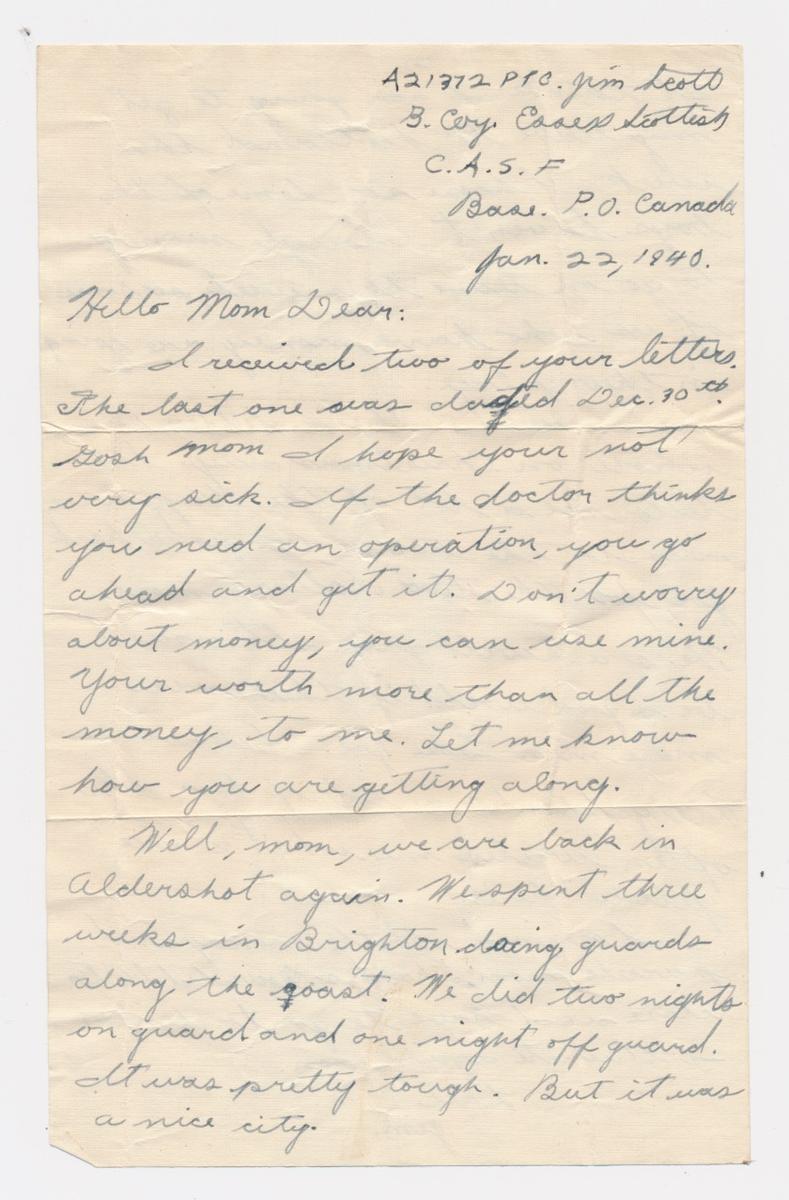 A21372 Pte. Jim Scott
B. Coy. Essex Scottish
C.A.S.F
Base. P.O. Canada
Jan. 22, 1940.
Hello Mom Dear:
I received two of your letters.
The last one was dated Dec. 30th.
Gosh mom I hope your not
very sick. If the doctor thinks
you need an operation, you go
ahead and get it. Don't worry
about money, you can use mine.
Your worth more than all the
money, to me. Let me know
how you are getting along.
Well, mom, we are back in
Aldershot again. We spent three
weeks in Brighton doing guards
along the coast. We did two nights
on guard and one night off guard.
It was pretty tough. But it was
a nice city.